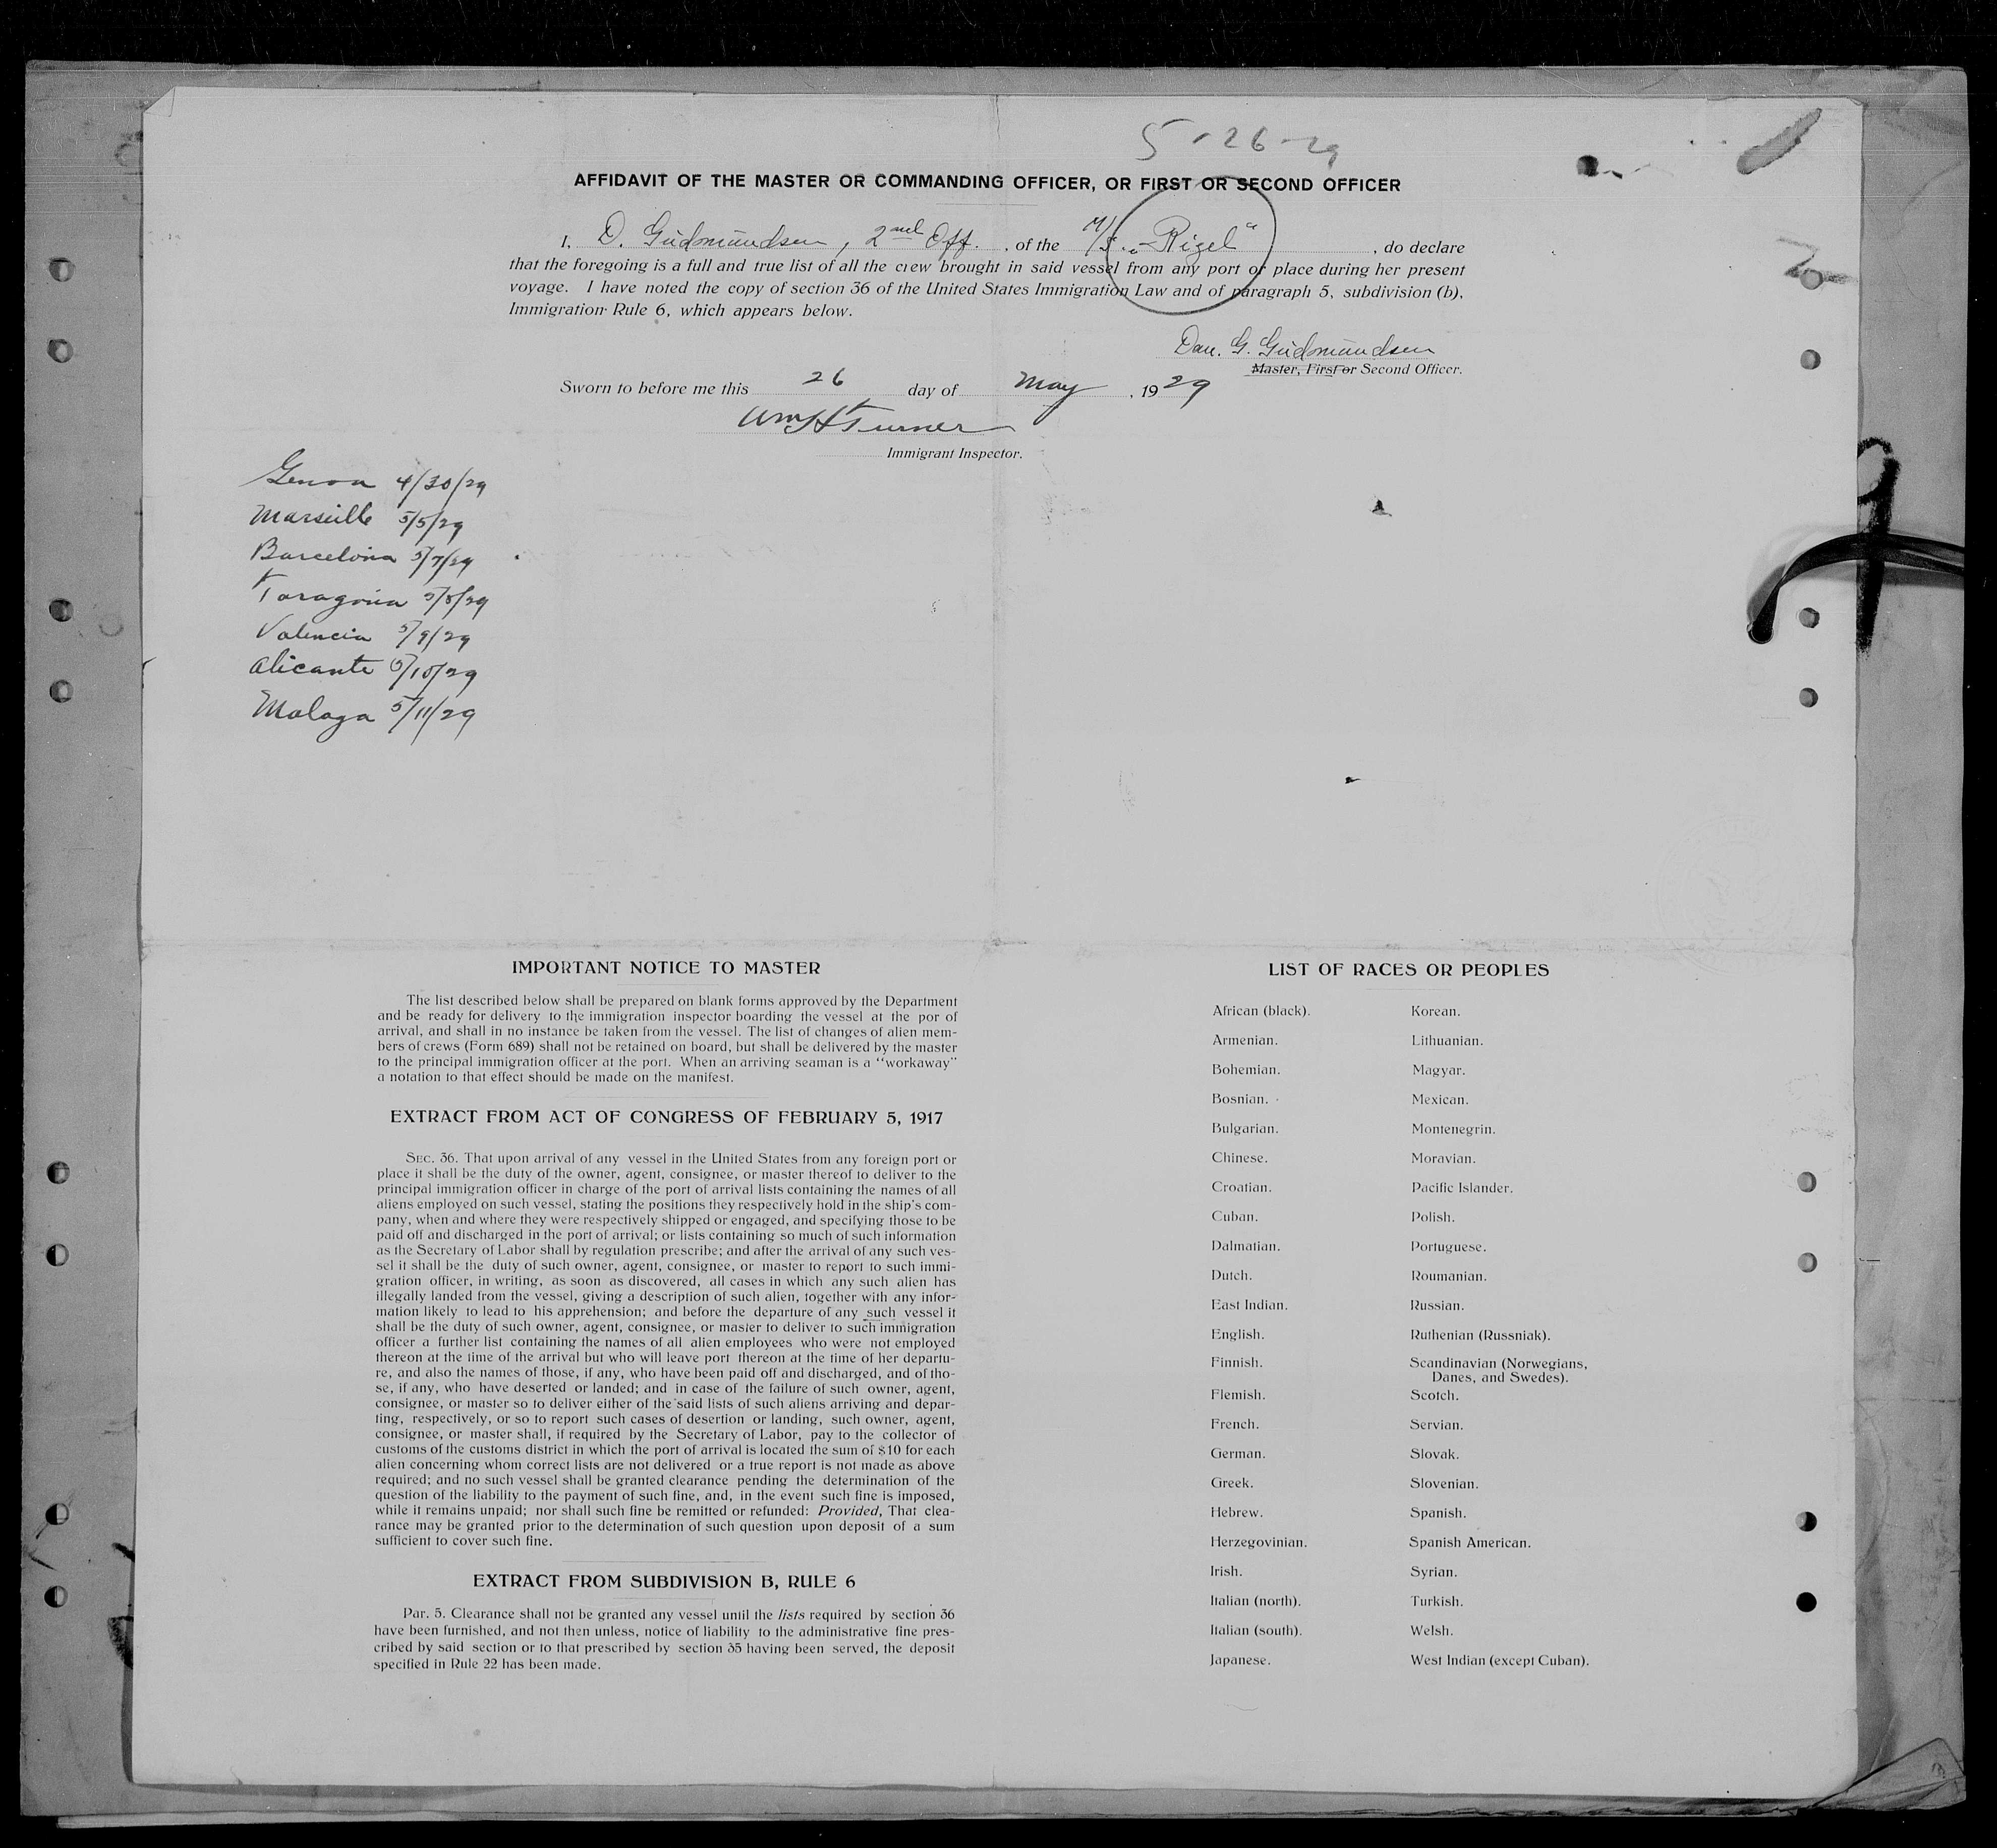 5-26-29
AFFIDAVIT OF THE MASTER OR COMMANDING OFFICER, OR FIRST OR SECOND OFFICER
I, D. Gudmundsen, 2nd Off., of the M/S. „Rigel“, do declare
that the foregoing is a full and true list of all the crew brought in said vessel from any port or place during her present
voyage. I have noted the copy of section 36 of the United States Immigration Law and of paragraph 5, subdivision (b),
Immigration Rule 6, which appears below.
Dan. G. Gudmundsen
Master, First or Second Officer.
Sworn to before me this 26 day of May, 1929
Wm H Turner
Immigrant Inspector.
Genoa 4/30/29
Marseille 5/5/29
Barcelona 5/7/29
Taragona 5/8/29
Valencia 5/9/29
Alicante 5/10/29
Malaga 5/11/29
IMPORTANT NOTICE TO MASTER
The list described below shall be prepared on blank forms approved by the Department
and be ready for delivery to the immigration inspector boarding the vessel at the por of
arrival, and shall in no instance be taken from the vessel. The list of changes of alien mem-
bers of crews (Form 689) shall not be retained on board, but shall be delivered by the master
to the principal immigration officer at the port. When an arriving seaman is a "workaway"
a notation to that effect should be made on the manifest.
EXTRACT FROM ACT OF CONGRESS OF FEBRUARY 5, 1917
SEC. 36. That upon arrival of any vessel in the United States from any foreign port or
place it shall be the duty of the owner, agent, consignee, or master thereof to deliver to the
principal immigration officer in charge of the port of arrival lists containing the names of all
aliens employed on such vessel, stating the positions they respectively hold in the ship's com-
pany, when and where they were respectively shipped or engaged, and specifying those to be
paid off and discharged in the port of arrival; or lists containing so much of such information
as the Secretary of Labor shall by regulation prescribe; and after the arrival of any such ves-
sel it shall be the duty of such owner, agent, consignee, or master to report to such immi-
gration officer, in writing, as soon as discovered, all cases in which any such alien has
illegally landed from the vessel, giving a description of such alien, together with any infor-
mation likely to lead to his apprehension; and before the departure of any such vessel it
shall be the duty of such owner, agent, consignee, or master to deliver to such immigration
officer a further list containing the names of all alien employees who were not employed
thereon at the time of the arrival but who will leave port thereon at the time of her departu-
re, and also the names of those, if any, who have been paid off and discharged, and of tho-
se, if any, who have deserted or landed; and in case of the failure of such owner, agent,
consignee, or master so to deliver either of the said lists of such aliens arriving and depar-
ting, respectively, or so to report such cases of desertion or landing, such owner, agent,
consignee, or master shall, if required by the Secretary of Labor, pay to the collector of
customs of the customs district in which the port of arrival is located the sum of $10 for each
alien concerning whom correct lists are not delivered or a true report is not made as above
required; and no such vessel shall be granted clearance pending the determination of the
question of the liability to the payment of such fine, and, in the event such fine is imposed,
while it remains unpaid; nor shall such fine be remitted or refunded: Provided, That clea-
rance may be granted prior to the determination of such question upon deposit of a sum
sufficient to cover such fine.
EXTRACT FROM SUBDIVISION B, RULE 6
Par. 5. Clearance shall not be granted any vessel until the lists required by section 36
have been furnished, and not then unless, notice of liability to the administrative fine pres-
cribed by said section or to that prescribed by section 35 having been served, the deposit
specified in Rule 22 has been made.
LIST OF RACES OR PEOPLES
African (black).
Armenian.
Bohemian.
Bosnian.
Bulgarian.
Chinese.
Croatian.
Cuban.
Dalmatian.
Dutch.
East Indian.
English.
Finnish.
Flemish.
French.
German.
Greek.
Hebrew.
Herzegovinian.
Irish.
Italian (north).
Italian (south).
Japanese.
Korean.
Lithuanian.
Magyar.
Mexican.
Montenegrin.
Moravian.
Pacific Islander.
Polish.
Portuguese.
Roumanian.
Russian.
Ruthenian (Russniak).
Scandinavian (Norwegians,
Danes, and Swedes).
Scotch.
Servian.
Slovak.
Slovenian.
Spanish.
Spanish American.
Syrian.
Turkish.
Welsh.
West Indian (except Cuban).